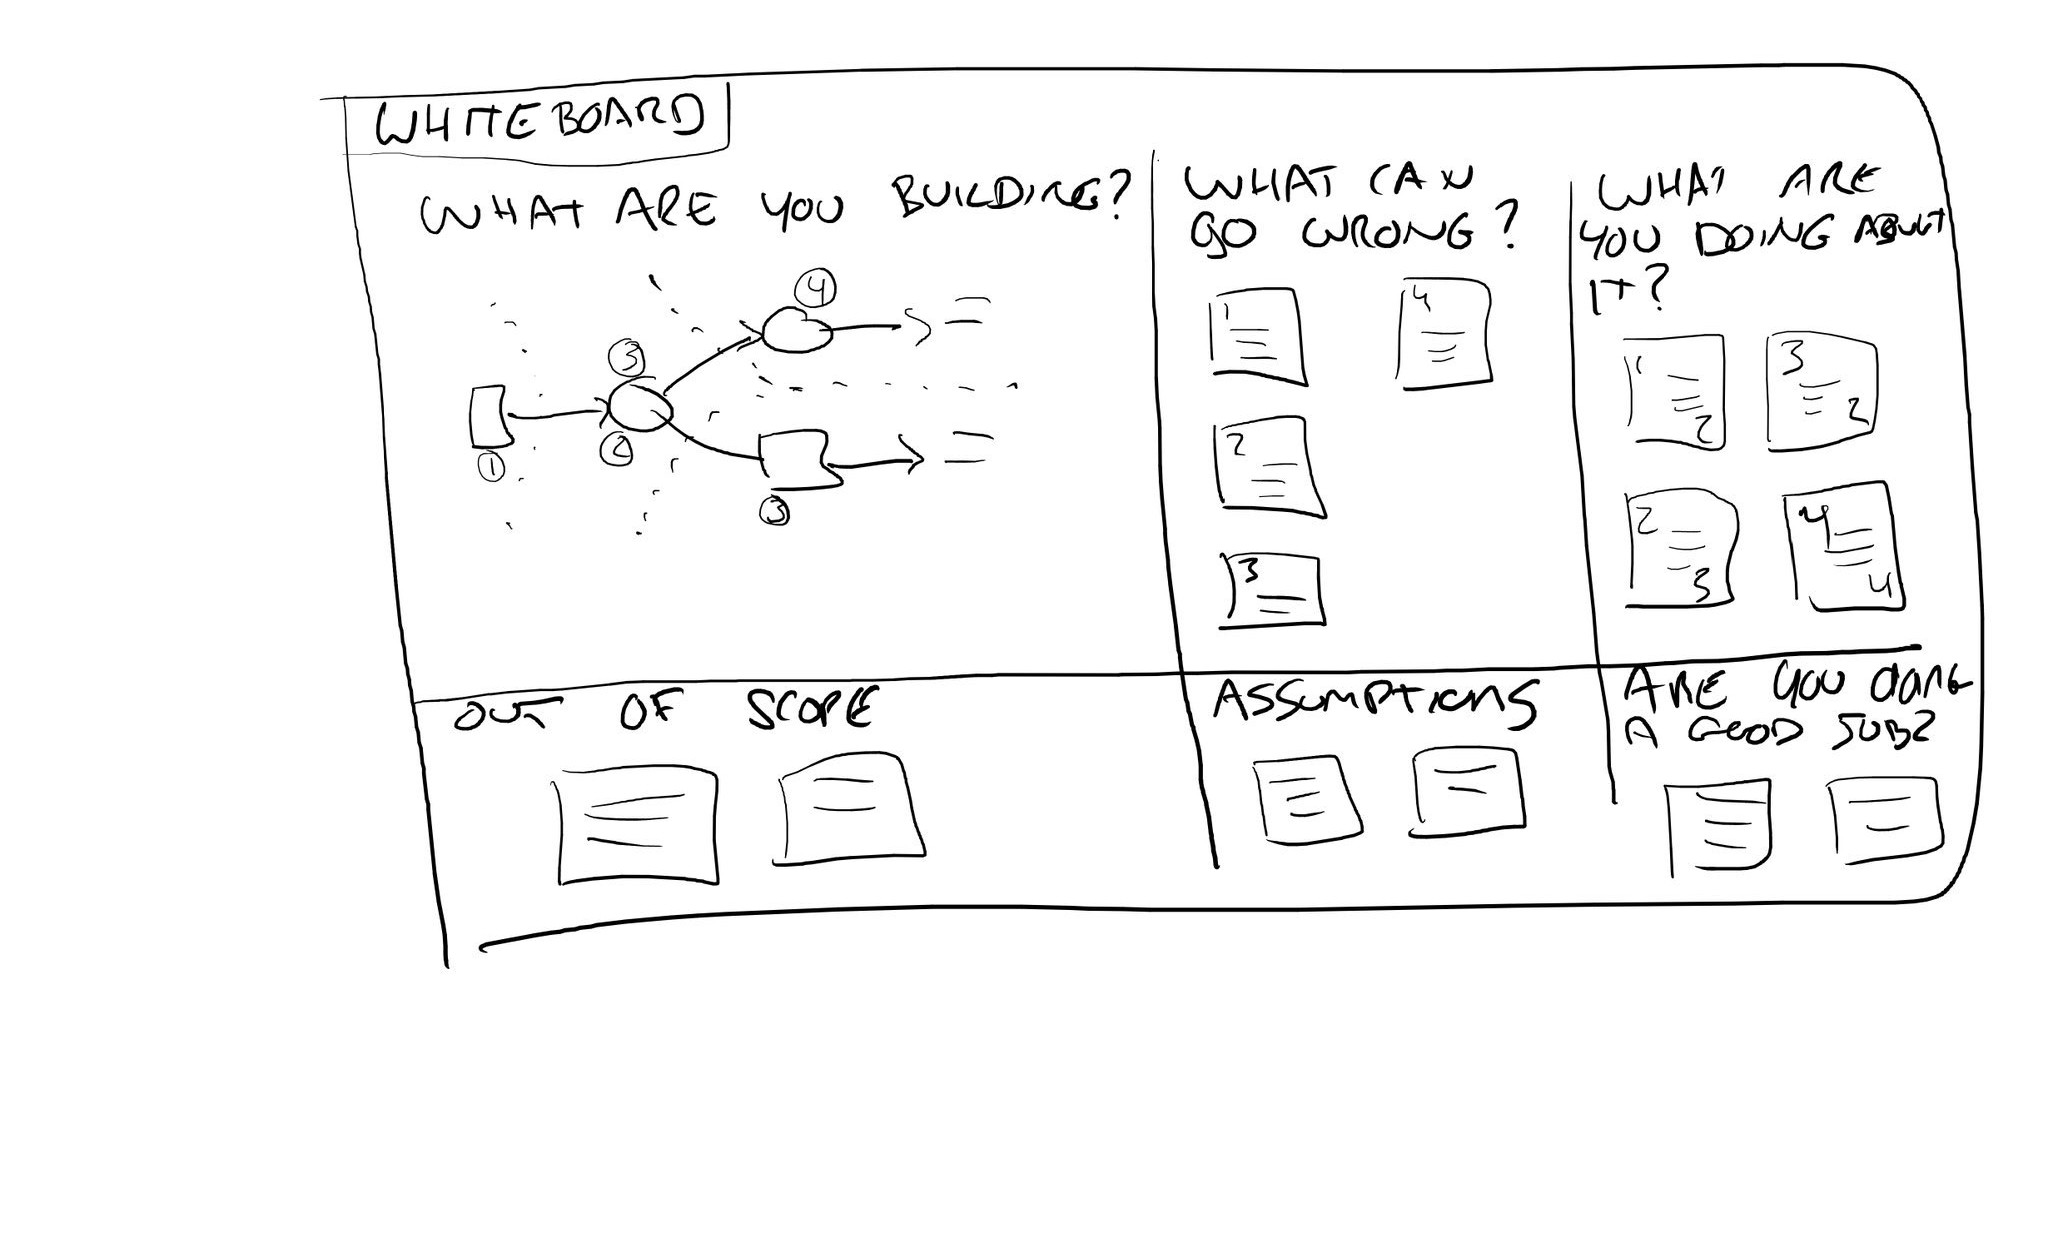 WHITEBOARD
WHAT ARE YOU BUILDING?
④
③
①
②
③
WHAT CAN
GO WRONG?
1
4
2
3
WHAT ARE
YOU DOING ABOUT
IT?
1
2
3
2
2
3
4
4
OUT OF SCOPE
ASSUMPTIONS
ARE YOU DOING
A GOOD JOB?